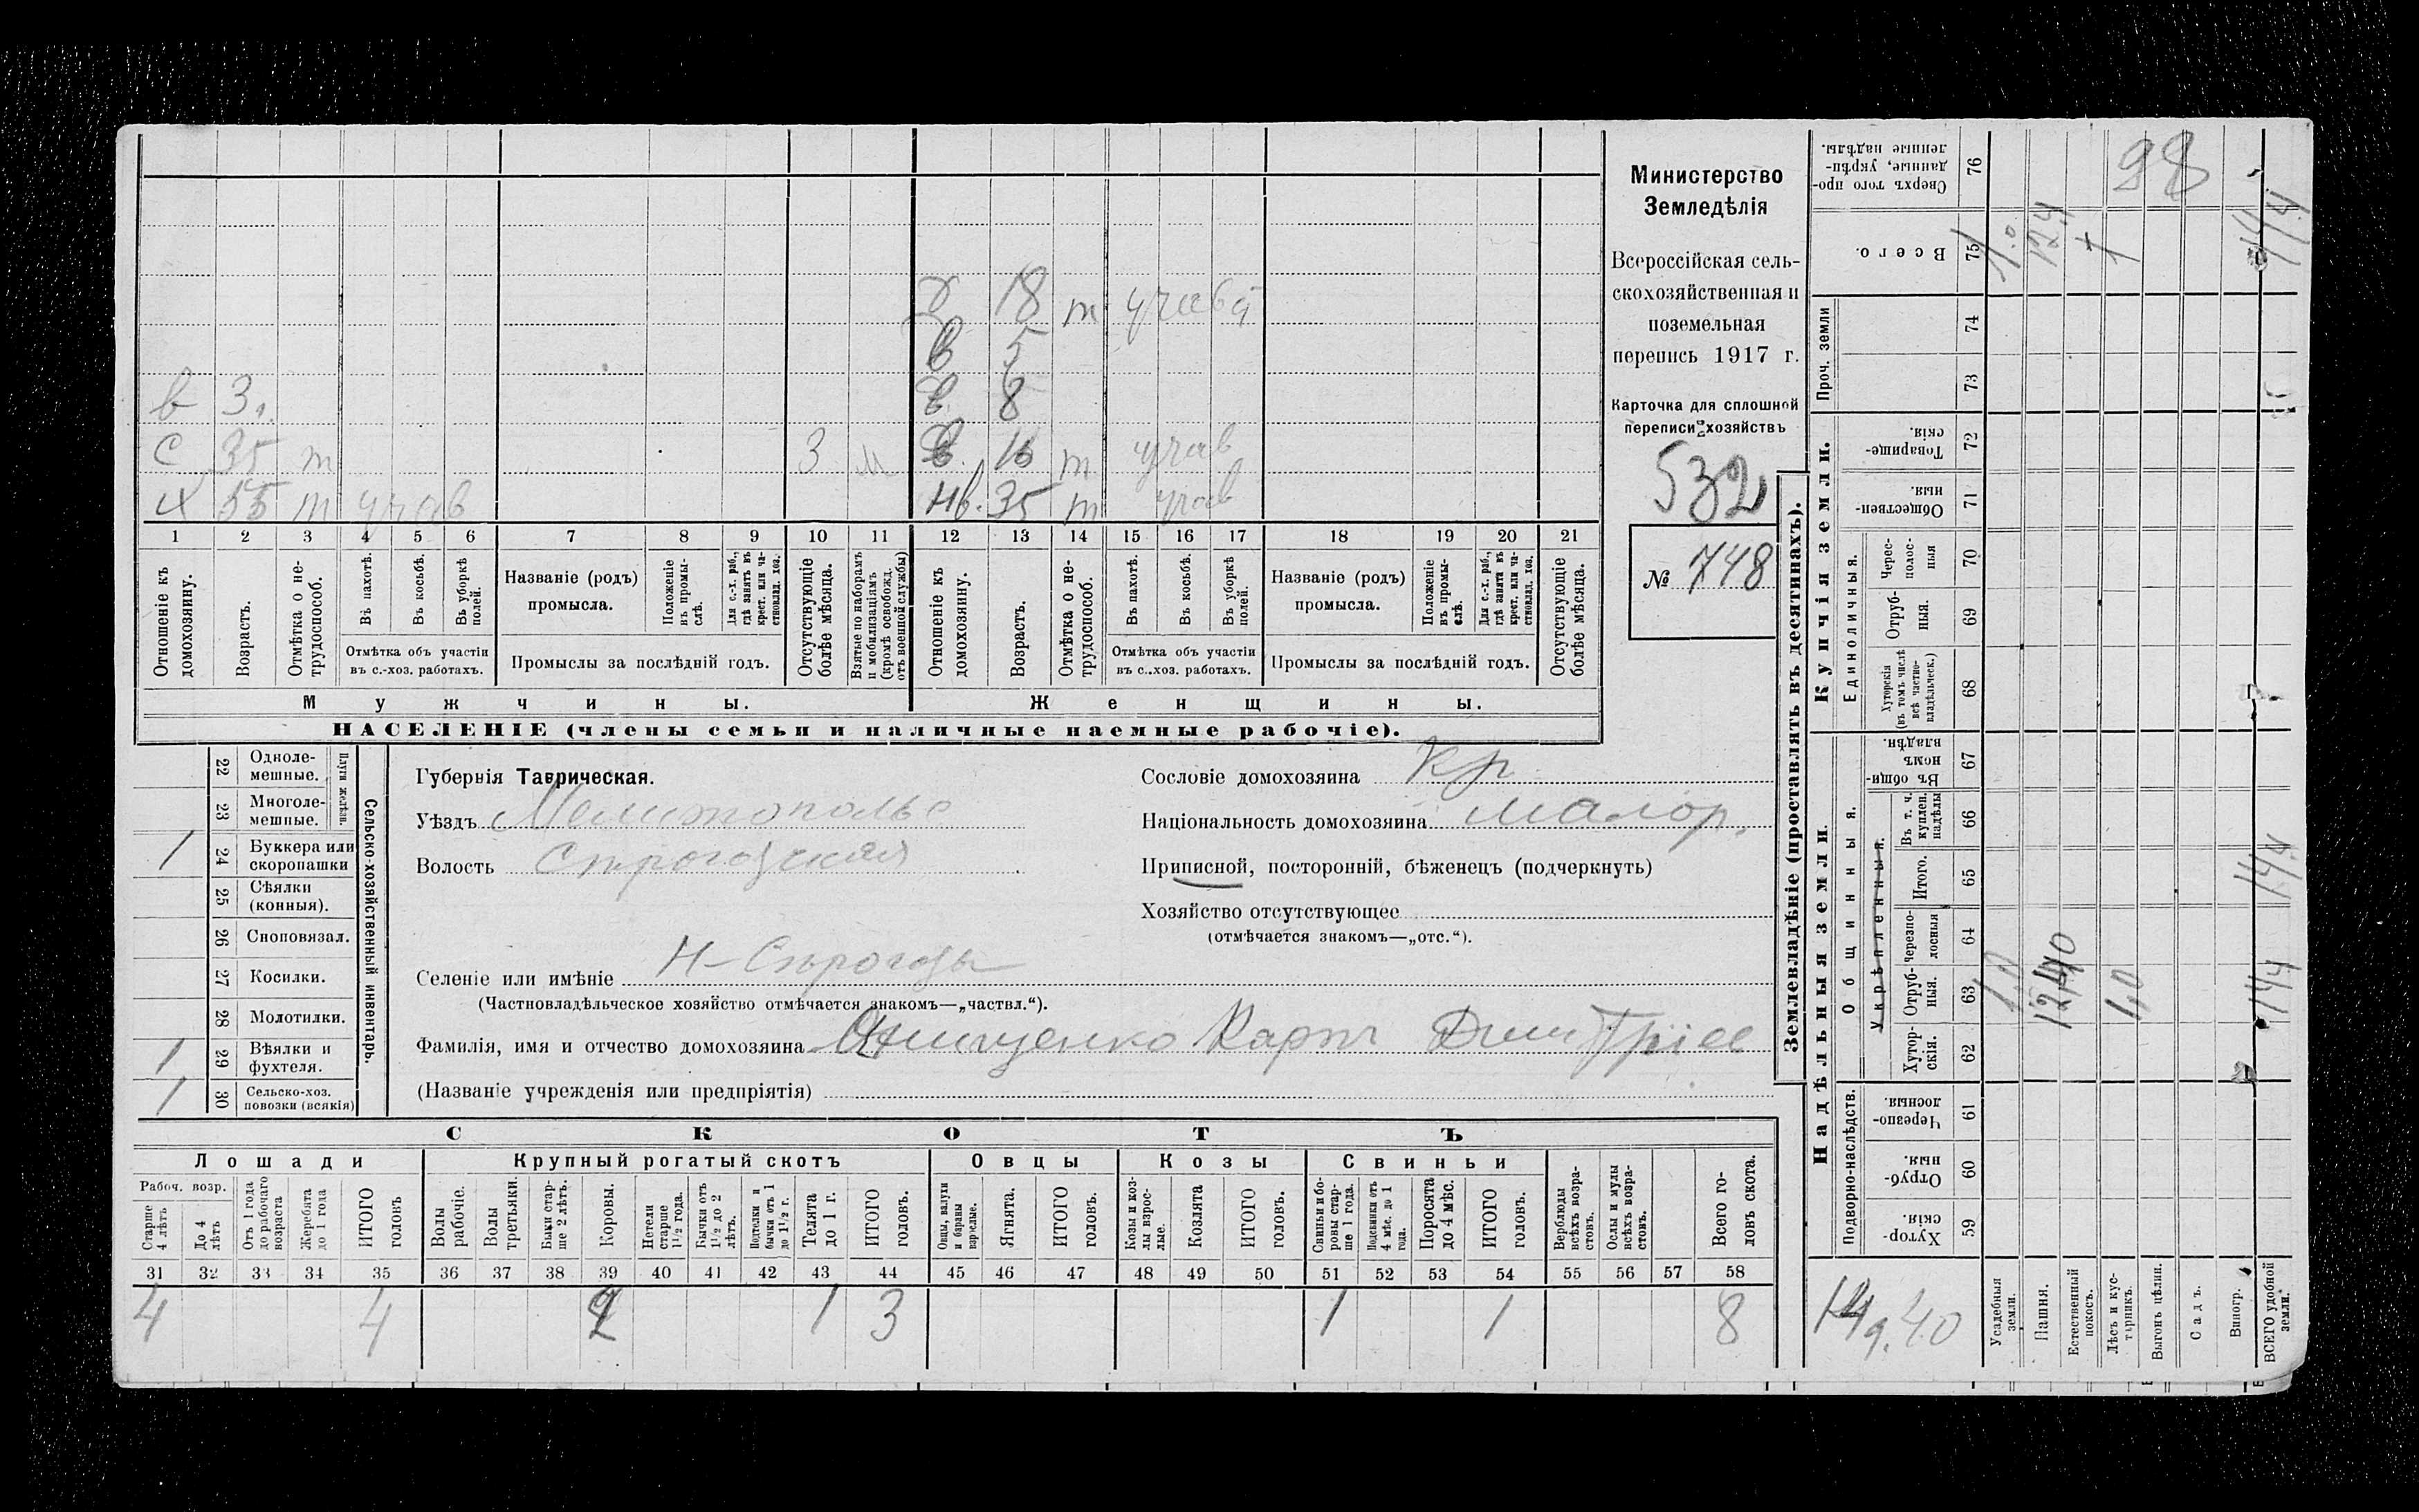 Министерство
Земледѣлія
Всероссійская сель-
скохозяйственная и
поземельная
перепись 1917 г.
Карточка для сплошной
переписи хозяйствъ
532
№ 748
х 18 т учав
в 5
в 3. в 8
с 35 т 3 м в 16 т учав
х 55 т учав нв. 35 т учав
1 2 3 4 5 6 7 8 9 10 11 12 13 14 15 16 17 18 19 20 21
Отношеніе къ домохозяину.
Возрастъ.
Отмѣтка о не-трудоспособ.
Въ пахотѣ.
Въ косьбѣ.
Въ уборкѣ полей.
Отмѣтка объ участіи
въ с.-хоз. работахъ.
Названіе (родъ)
промысла.
Положеніе въ промы-слѣ.
Для с.-х. раб., гдѣ занятъ въ крест. или ча-стновлад. хоз.
Промыслы за послѣдній годъ.
Отсутствующіе болѣе мѣсяца.
Взятые по наборамъ и мобилизаціямъ (кромѣ освобожд. отъ военной службы)
Отношеніе къ домохозяину.
Возрастъ.
Отмѣтка о не-трудоспособ.
Въ пахотѣ.
Въ косьбѣ.
Въ уборкѣ полей.
Отмѣтка объ участіи
въ с.-хоз. работахъ.
Названіе (родъ)
промысла.
Положеніе въ промы-слѣ.
Для с.-х. раб., гдѣ заняти въ крест. или ча-стновлад. хоз.
Промыслы за послѣдній годъ.
Отсутствующіе болѣе мѣсяца.
Мужчины. Женщины.
НАСЕЛЕНІЕ (члены семьи и наличные наемные рабочіе).
22 Одноле-мешные.
23 Многоле-мешные.
Плуги желѣзн.
1 24 Буккера или скоропашки
25 Сѣялки (конныя).
26 Сноповязал.
27 Косилки.
28 Молотилки.
1 29 Вѣялки и фухтеля.
1 30 Сельско-хоз. повозки (всякія)
Сельско-хозяйственный инвентарь.
Губернія Таврическая.
Уѣздъ Мелитопольс
Волость Строгозская
Селеніе или имѣніе Н-Сѣрогозы
(Частновладѣльческое хозяйство отмѣчается знакомъ—„частвл.“).
Фамилія, имя и отчество домохозяина Онищенко Карпъ Дмитріев
(Названіе учрежденія или предпріятія)
Сословіе домохозяина Кр
Національность домохозяина малор.
Приписной, посторонній, бѣженецъ (подчеркнуть)
Хозяйство отсутствующее
(отмѣчается знакомъ—„отс.“).
СКОТЪ
Лошади Крупный рогатый скотъ Овцы Козы Свиньи
Рабоч. возр.
Старше 4 лѣтъ
До 4 лѣтъ
Отъ 1 года до рабочаго возраста
Жеребята до 1 года
ИТОГО головъ
Волы рабочіе.
Волы третьяки.
Быки стар-ше 2 лѣтъ.
Коровы.
Нетели старше 1½ года.
Бычки отъ 1½ до 2 лѣтъ.
Подтелки и бычки отъ 1 до 1½ г.
Телята до 1 г.
ИТОГО головъ.
Овцы, валухи и бараны взрослые.
Ягнята.
ИТОГО головъ.
Козы и коз-лы взрос-лые.
Козлята
ИТОГО головъ.
Свиньи и бо-ровы стар-ше 1 года.
Подсвинки отъ 4 мѣс. до 1 года.
Поросята до 4 мѣс.
ИТОГО головъ.
Верблюды всѣхъ возра-стовъ.
Ослы и мулы всѣхъ возра-стовъ.
Всего го-ловъ скота.
31 32 33 34 35 36 37 38 39 40 41 42 43 44 45 46 47 48 49 50 51 52 53 54 55 56 57 58
4 4 2 1 3 1 1 8
Землевладѣніе (проставлять въ десятинахъ).
Надѣльныя земли. Купчія земли. Проч. земли
Подворно-наслѣдств.
Общинныя.
Укрѣпленныя.
Единоличныя.
59 Хутор-скія.
60 Отруб-ныя.
61 Черезпо-лосныя.
62 Хутор-скія.
63 Отруб-ныя.
64 Черезпо-лосныя
65 Итого.
66 Въ т. ч. куплен. надѣлы
67 Въ общи-номъ владѣн.
68 Хуторскія (въ томъ числѣ всѣ частно-владѣльческ.)
69 Отруб-ныя.
70 Черес-полос-ныя
71 Обществен-ныя.
72 Товарище-скія.
73
74
75 Всего.
76 Сверхъ того про-данные, укрѣп-ленные надѣлы.
Усадебныя земли.
Пашня.
Естественный покосъ.
Лѣсъ и кус-тарникъ.
Выгонъ цѣлин.
Садъ.
Виногр.
ВСЕГО удобной земли.
1,0
1,0
14,4
14,4
1.0
12.4
98